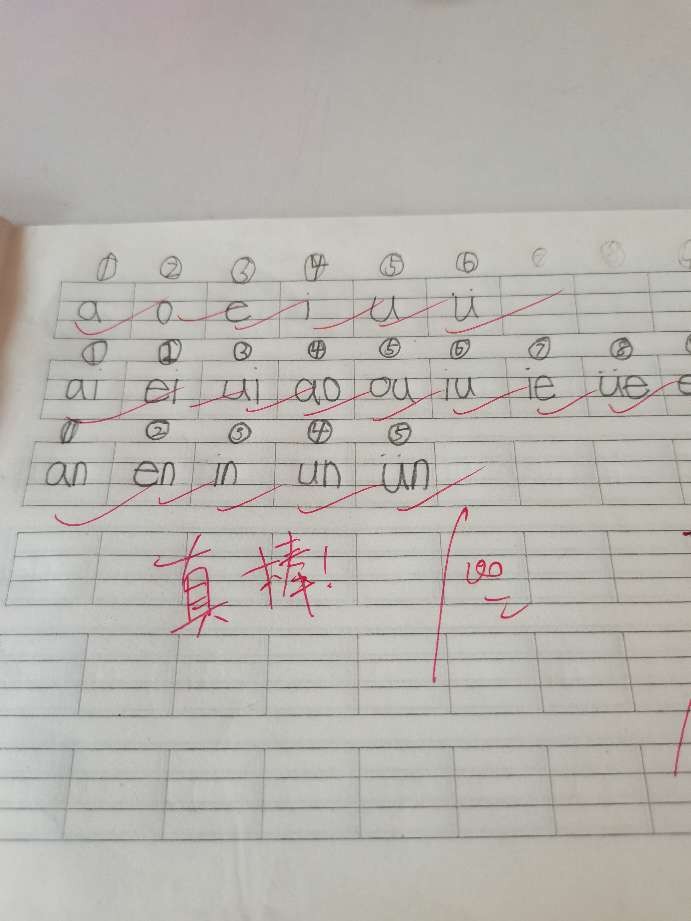 ① ② ③ ④ ⑤ ⑥
a o e i u ü
① ② ③ ④ ⑤ ⑥ ⑦ ⑧
ai ei ui ao ou iu ie üe e
① ② ③ ④ ⑤
an en in un ün
真棒!
100